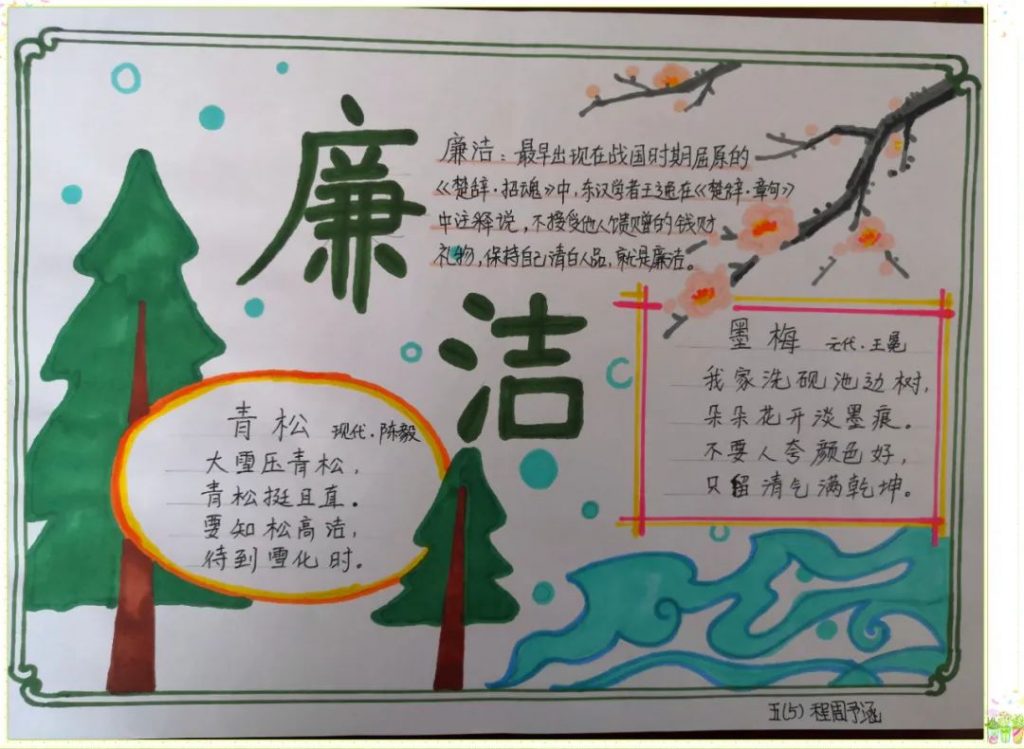 廉洁
廉洁：最早出现在战国时期屈原的
《楚辞·招魂》中，东汉学者王逸在《楚辞·章句》
中注释说，不接受他人馈赠的钱财
礼物，保持自己清白人品，就是廉洁。
青松 现代·陈毅
大雪压青松，
青松挺且直。
要知松高洁，
待到雪化时。
墨梅 元代·王冕
我家洗砚池边树，
朵朵花开淡墨痕。
不要人夸颜色好，
只留清气满乾坤。
五(5) 程周予涵